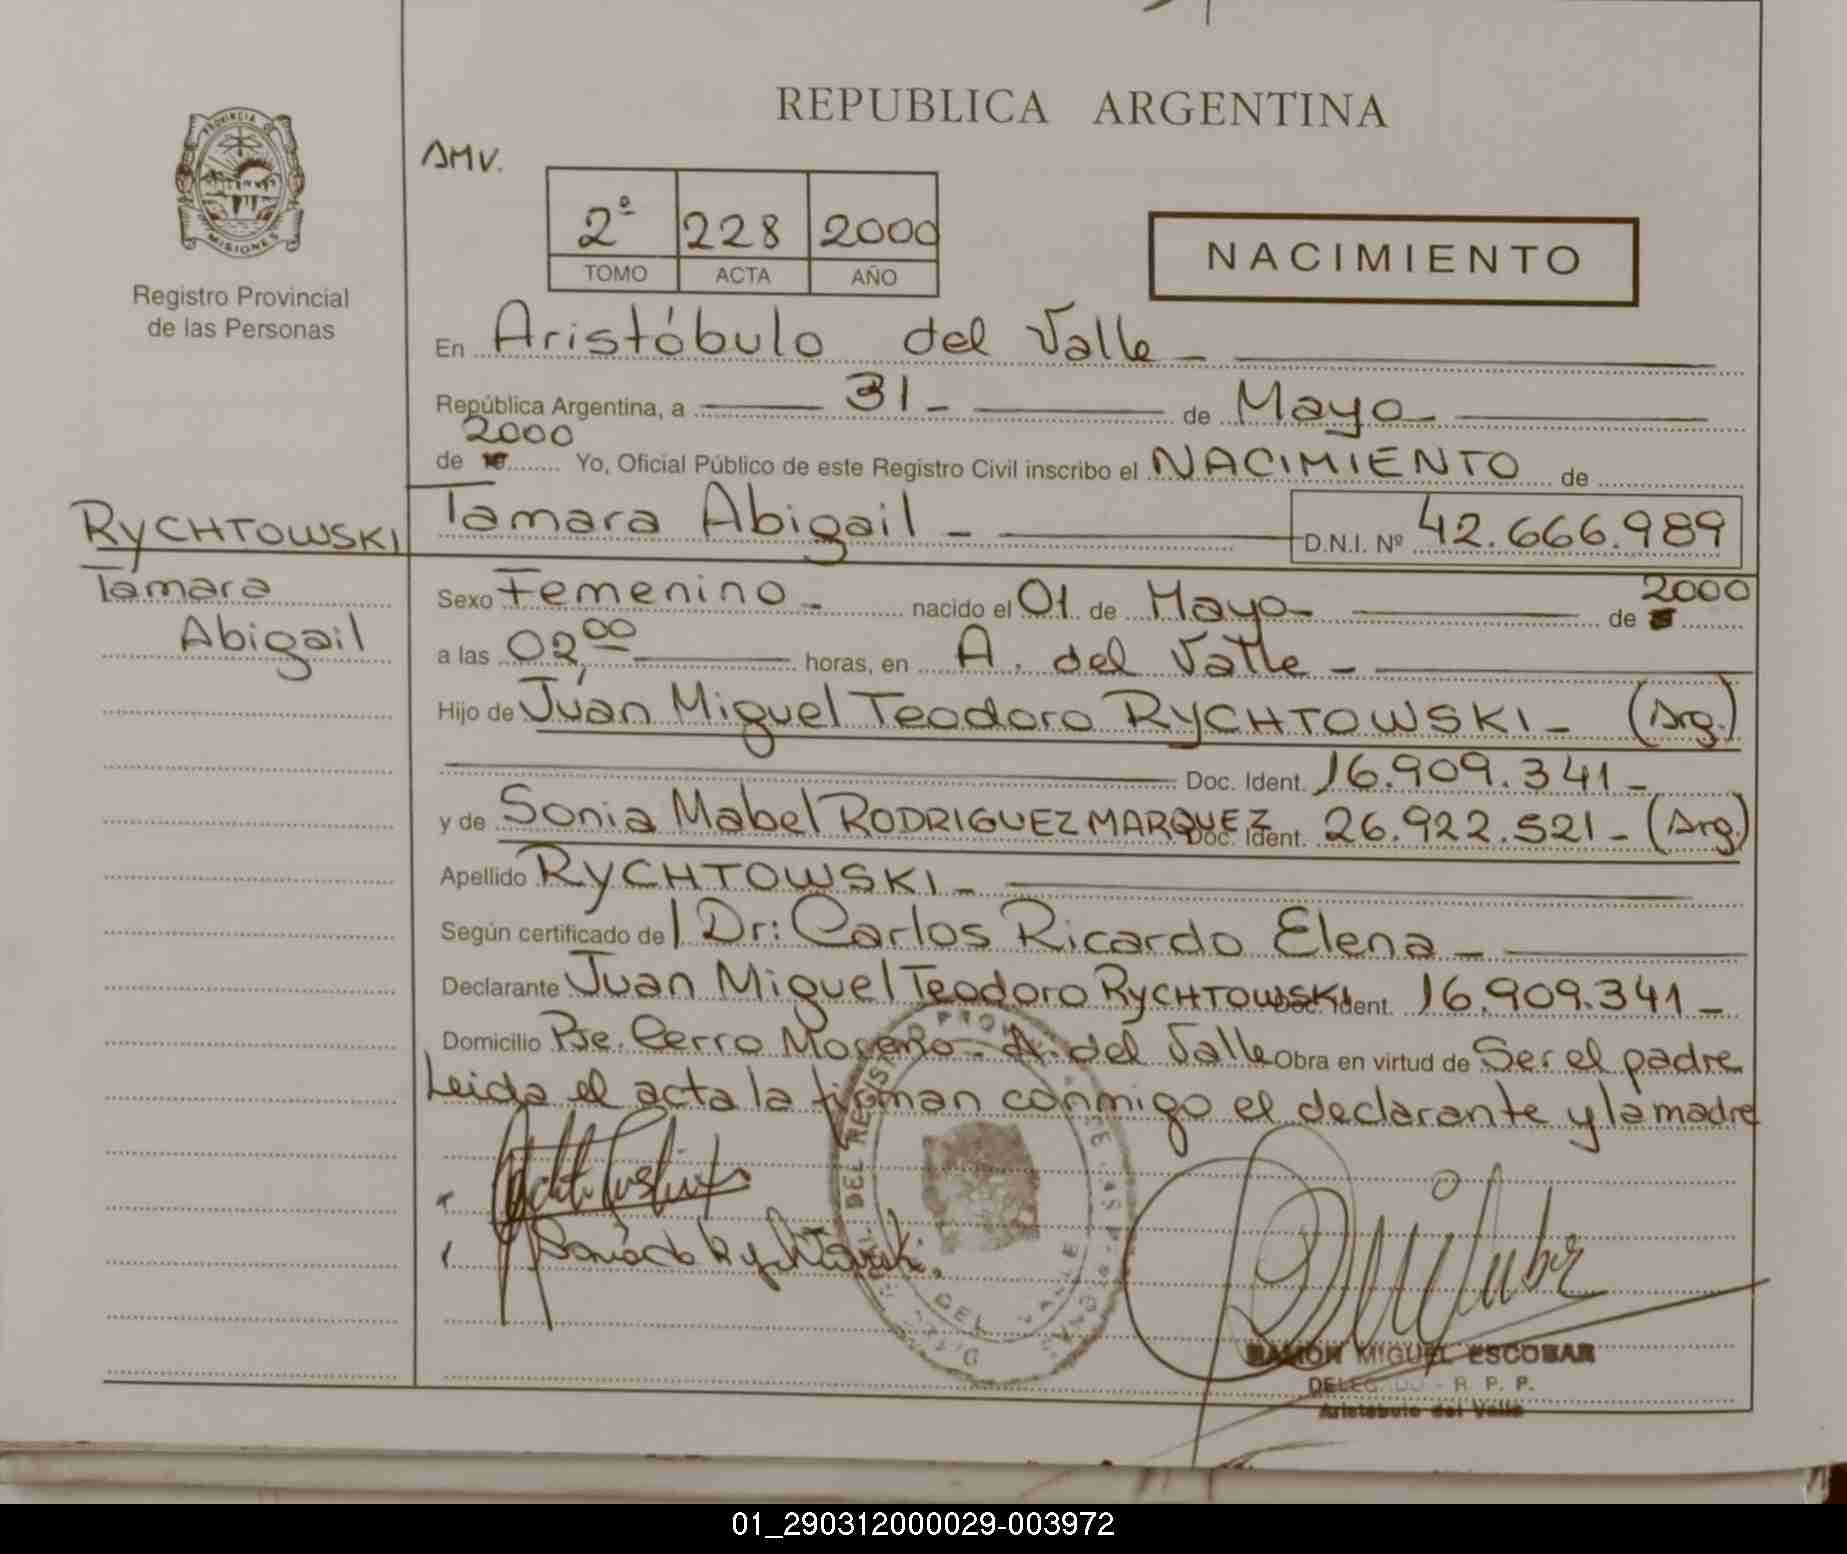 REPUBLICA ARGENTINA
PROVINCIA DE
MISIONES
Registro Provincial
de las Personas
AMV.
2º 228 2000
TOMO ACTA AÑO
NACIMIENTO
En Aristóbulo del Valle -
República Argentina, a 31 - de Mayo -
2000
de Yo, Oficial Público de este Registro Civil inscribo el NACIMIENTO de
RYCHTOWSKI
Tamara
Abigail
Tamara Abigail - D.N.I. Nº 42.666.989
Sexo Femenino - nacido el 01 de Mayo - de 2000
a las 02,00 horas, en A. del Valle -
Hijo de Juan Miguel Teodoro RYCHTOWSKI - (Arg.)
Doc. Ident. 16.909.341 -
y de Sonia Mabel RODRIGUEZ MARQUEZ Doc. Ident. 26.922.521 - (Arg.)
Apellido RYCHTOWSKI -
Según certificado de l Dr: Carlos Ricardo Elena -
Declarante Juan Miguel Teodoro RYCHTOWSKI Doc. Ident. 16.909.341 -
Domicilio Pje. Cerro Moreno - A. del Valle Obra en virtud de Ser el padre
Leida el acta la firman conmigo el declarante y la madre
DEL REGISTRO
DEL
RAMÓN MIGUEL ESCOBAR
DELEGADO - R. P. P.
Aristobulo del Valle
01_290312000029-003972